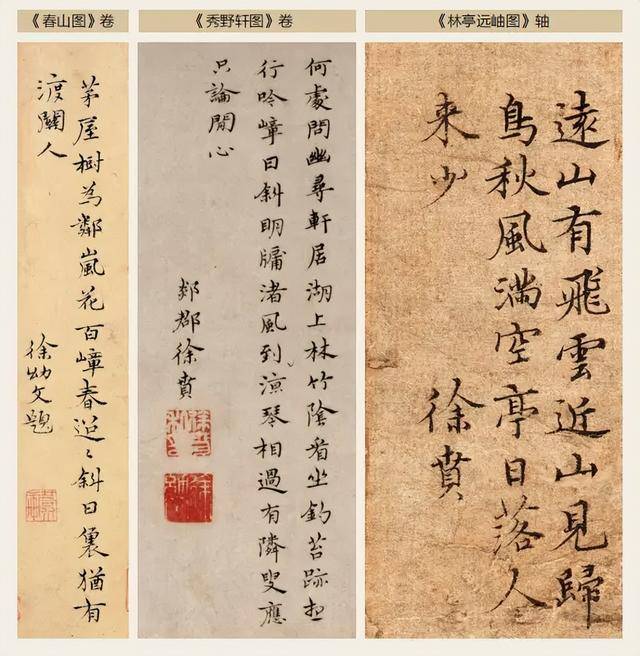 《春山图》卷
《秀野轩图》卷
《林亭远岫图》轴
茅屋樹為鄰嵐花百嶂春迢〻斜日裏猶有
渡關人
徐幼文題
何處問幽尋軒居湖上林竹陰看坐釣苔跡想
行吟嶂日斜明牖渚風到涼琴相過有隣叟應
只論閒心
郯郡徐賁
遠山有飛雲近山見歸
鳥秋風満空亭日落人
来少
徐賁